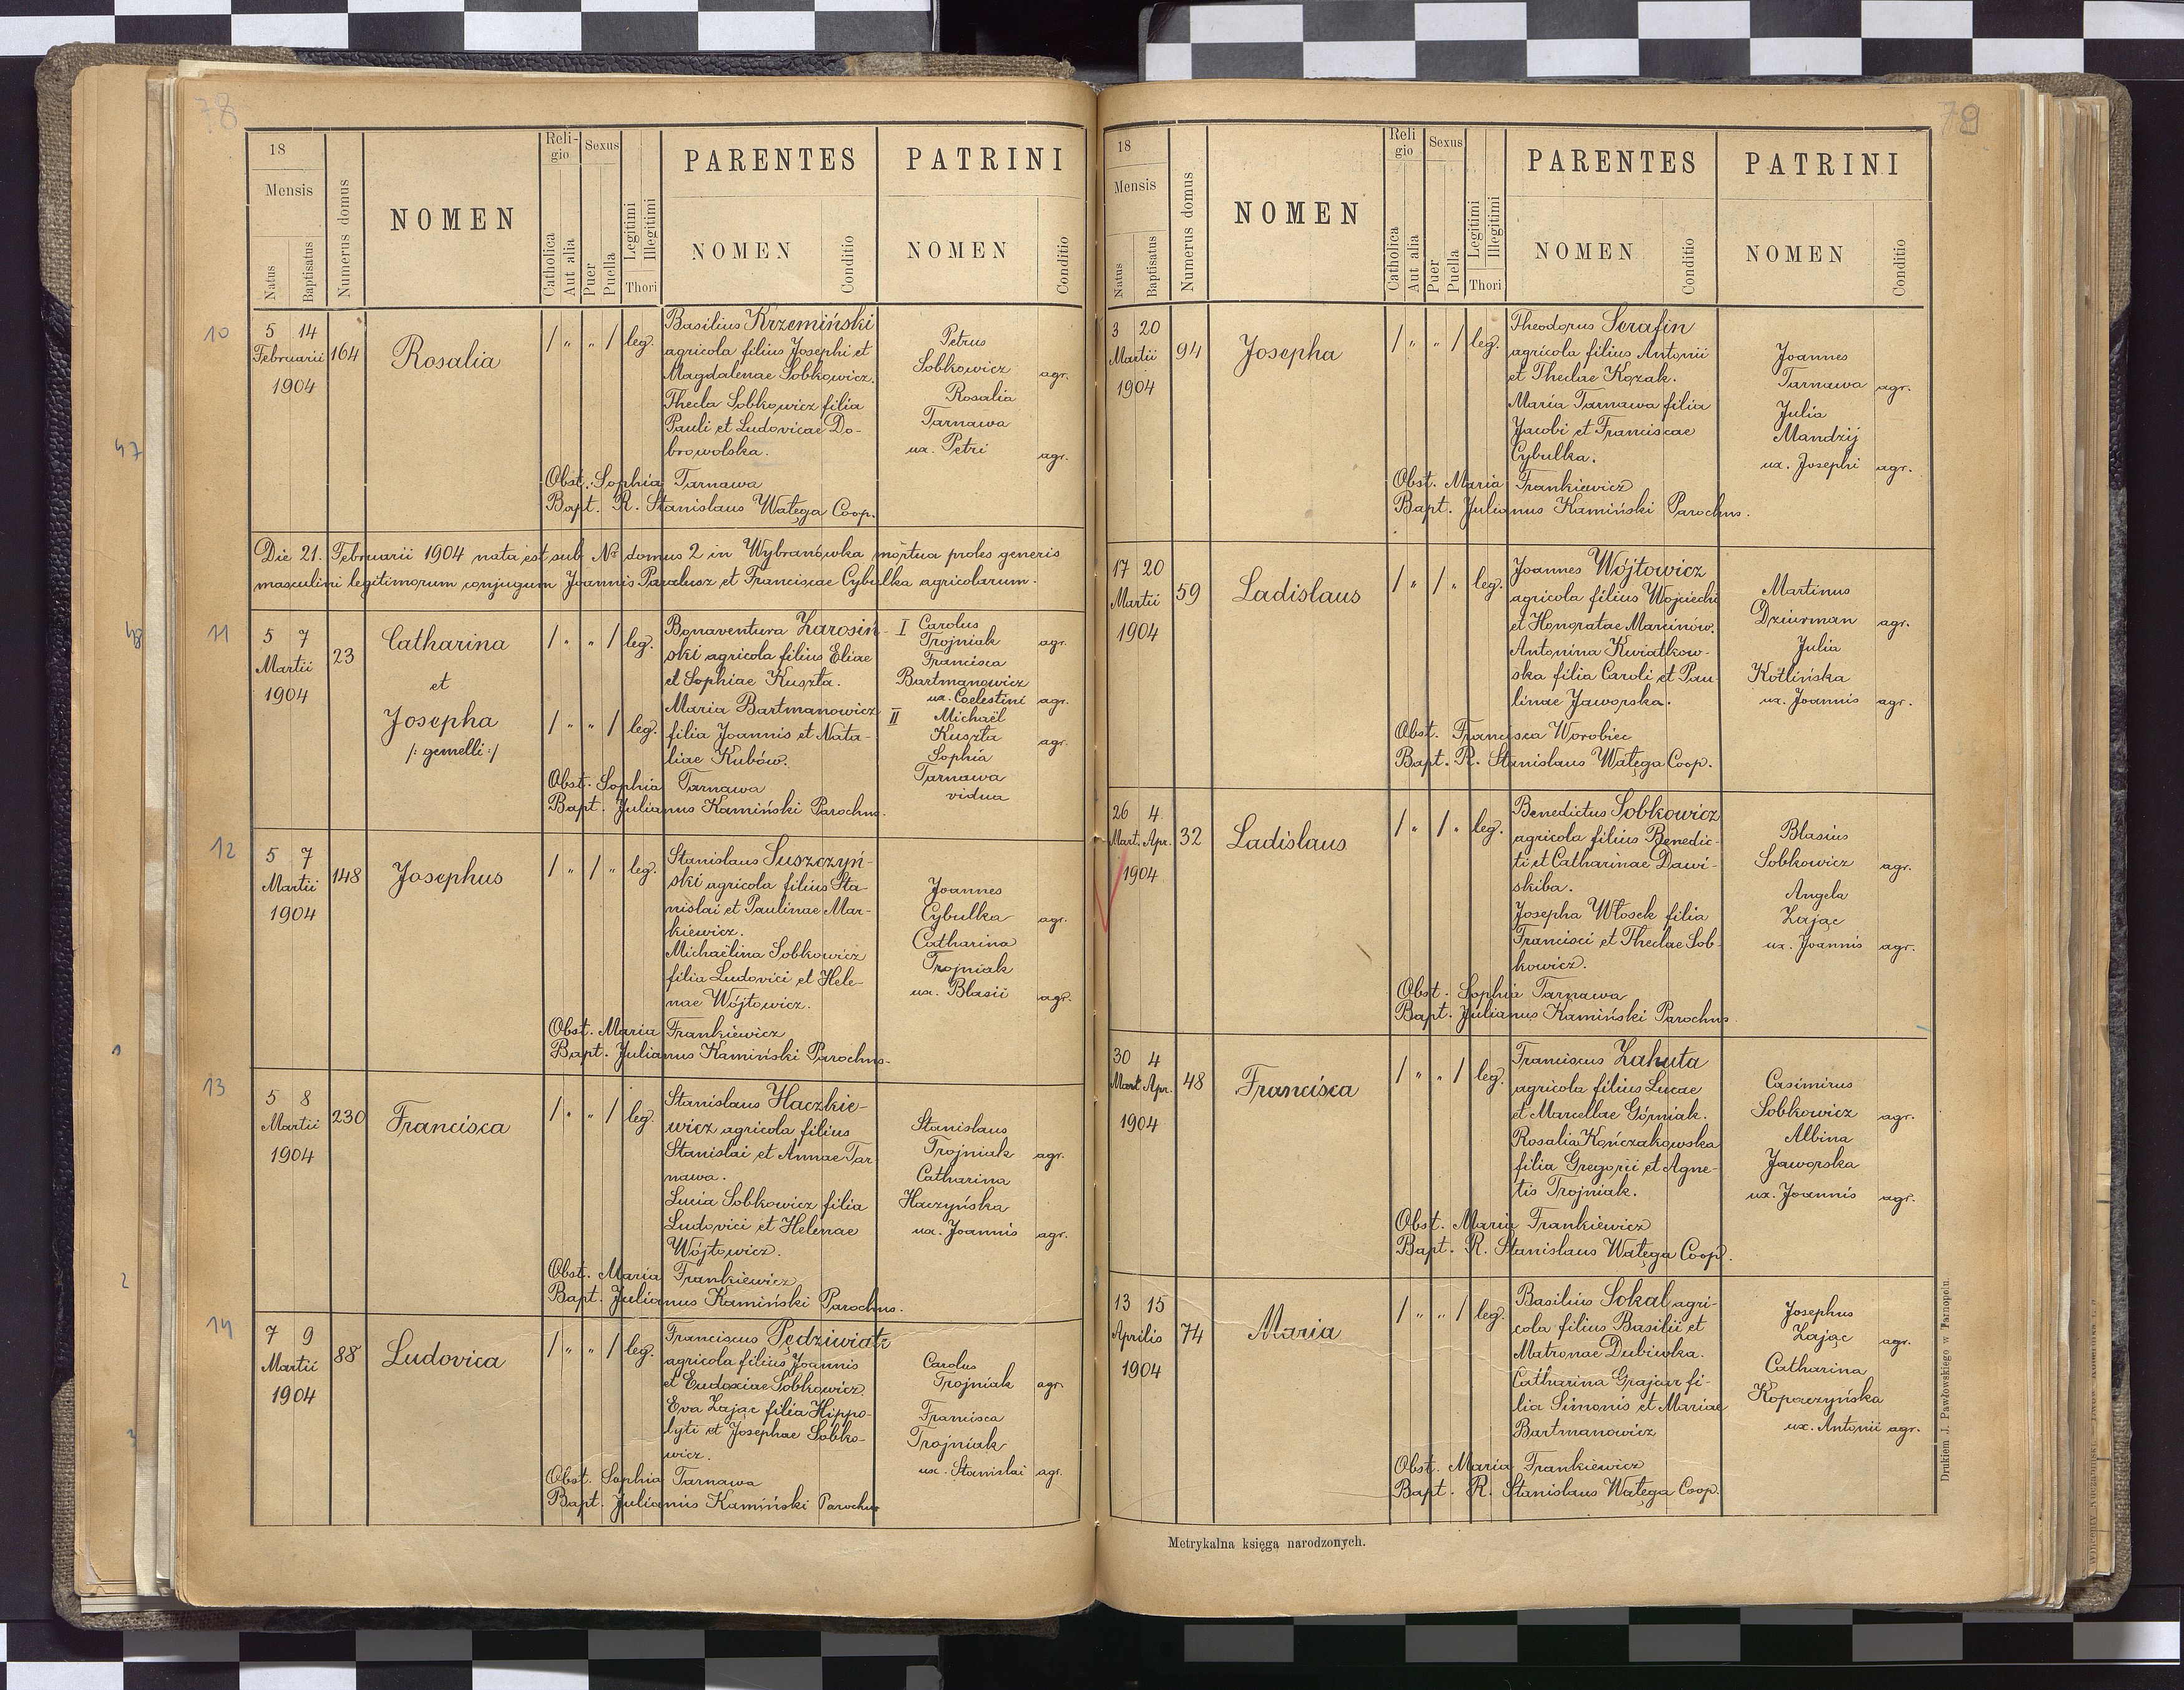 78
18
Mensis
Natus
Baptisatus
Numerus domus
NOMEN
Religio
Catholica
Aut alia
Sexus
Puer
Puella
Legitimi
Illegitimi
Thori
PARENTES
NOMEN
Conditio
PATRINI
NOMEN
Conditio
10
5 14
Februarii
1904
164
Rosalia
/ " " / leg.
Basilius Krzemiński
agricola filius Josephi et
Magdalenae Sobkowicz.
Thecla Sobkowicz filia
Pauli et Ludovicae Do-
browolska.
Petrus
Sobkowicz agr.
Rosalia
Tarnawa
ux. Petri agr.
Obst. Sophia Tarnawa
Bapt. R. Stanislaus Watęga Coop.
47
Die 21. Februarii 1904 nata est sub No domus 2 in Wybranówka mortua proles generis
masculini legitimorum conjugum Joannis Paralusz et Franciscae Cybulka agricolarum.
48
11
5 7
Martii
1904
23
Catharina
et
Josepha
/: gemelli :/
/ " " / leg.
/ " " / leg.
Bonaventura Zarosiń-
ski agricola filius Eliae
et Sophiae Kuszta.
Maria Bartmanowicz
filia Joannis et Nata-
liae Kubów.
I Carolus
Trojniak agr.
Francisca
Bartmanowicz
ux. Coelestini agr.
II Michaël
Kuszta agr.
Sophia
Tarnawa
vidua
Obst. Sophia Tarnawa
Bapt. Julianus Kamiński Parochus.
12
5 7
Martii
1904
148
Josephus
/ " / " leg.
Stanislaus Suszczyń-
ski agricola filius Sta-
nislai et Paulinae Mar-
kiewicz.
Michaëlina Sobkowicz
filia Ludovici et Hele-
nae Wójtowicz.
Joannes
Cybulka agr.
Catharina
Trojniak
ux. Blasii agr.
Obst. Maria Frankiewicz
Bapt. Julianus Kamiński Parochus.
13
5 8
Martii
1904
230
Francisca
/ " " / leg.
Stanislaus Haczkie-
wicz agricola filius
Stanislai et Annae Tar-
nawa.
Lucia Sobkowicz filia
Ludovici et Helenae
Wójtowicz.
Stanislaus
Trojniak agr.
Catharina
Haczyńska
ux. Joannis agr.
Obst. Maria Frankiewicz
Bapt. Julianus Kamiński Parochus.
2
14
7 9
Martii
1904
88
Ludovica
/ " " / leg.
Franciscus Pędziwiatr
agricola filius Joannis
et Eudoxiae Sobkowicz.
Eva Zając filia Hippo-
lyti et Josephae Sobko-
wicz.
Carolus
Trojniak agr.
Francisca
Trojniak
ux. Stanislai agr.
Obst. Sophia Tarnawa
Bapt. Julianus Kamiński Parochus
79
18
Mensis
Natus
Baptisatus
Numerus domus
NOMEN
Religio
Catholica
Aut alia
Sexus
Puer
Puella
Legitimi
Illegitimi
Thori
PARENTES
NOMEN
Conditio
PATRINI
NOMEN
Conditio
3 20
Martii
1904
94
Josepha
/ " " / leg.
Theodorus Serafin
agricola filius Antonii
et Theclae Kozak.
Maria Tarnawa filia
Jacobi et Franciscae
Cybulka.
Joannes
Tarnawa agr.
Julia
Mandzij
ux. Josephi agr.
Obst. Maria Frankiewicz
Bapt. Julianus Kamiński Parochus.
17 20
Martii
1904
59
Ladislaus
/ " / " leg.
Joannes Wójtowicz
agricola filius Wojciechi
et Honoratae Marcinów.
Antonina Kwiatkow-
ska filia Caroli et Pau-
linae Jaworska.
Martinus
Dziurman agr.
Julia
Kotlińska
ux. Joannis agr.
Obst. Francisca Worobiec
Bapt. R. Stanislaus Watęga Coop.
26 4
Mart. Apr.
1904
32
Ladislaus
/ " / " leg.
Benedictus Sobkowicz
agricola filius Benedic-
ti et Catharinae Dawi-
skiba.
Josepha Włosek filia
Francisci et Theclae Sob-
kowicz.
Blasius
Sobkowicz agr.
Angela
Zając
ux. Joannis agr.
Obst. Sophia Tarnawa
Bapt. Julianus Kamiński Parochus
30 4
Mart. Apr.
1904
48
Francisca
/ " " / leg.
Franciscus Zahuta
agricola filius Lucae
et Marcellae Górniak.
Rosalia Kończakowska
filia Gregorii et Agne-
tis Trojniak.
Casimirus
Sobkowicz agr.
Albina
Jaworska
ux. Joannis agr.
Obst. Maria Frankiewicz
Bapt. R. Stanislaus Watęga Coop.
13 15
Aprilis
1904
74
Maria
/ " " / leg.
Basilius Sokal agri-
cola filius Basilii et
Matronae Dubiwka.
Catharina Grajar fi-
lia Simonis et Mariae
Bartmanowicz
Josephus
Zając agr.
Catharina
Kopaczyńska
ux. Antonii agr.
Obst. Maria Frankiewicz
Bapt. R. Stanislaus Watęga Coop.
Metrykalna księga narodzonych.
Drukiem J. Pawłowskiego w Tarnopolu.